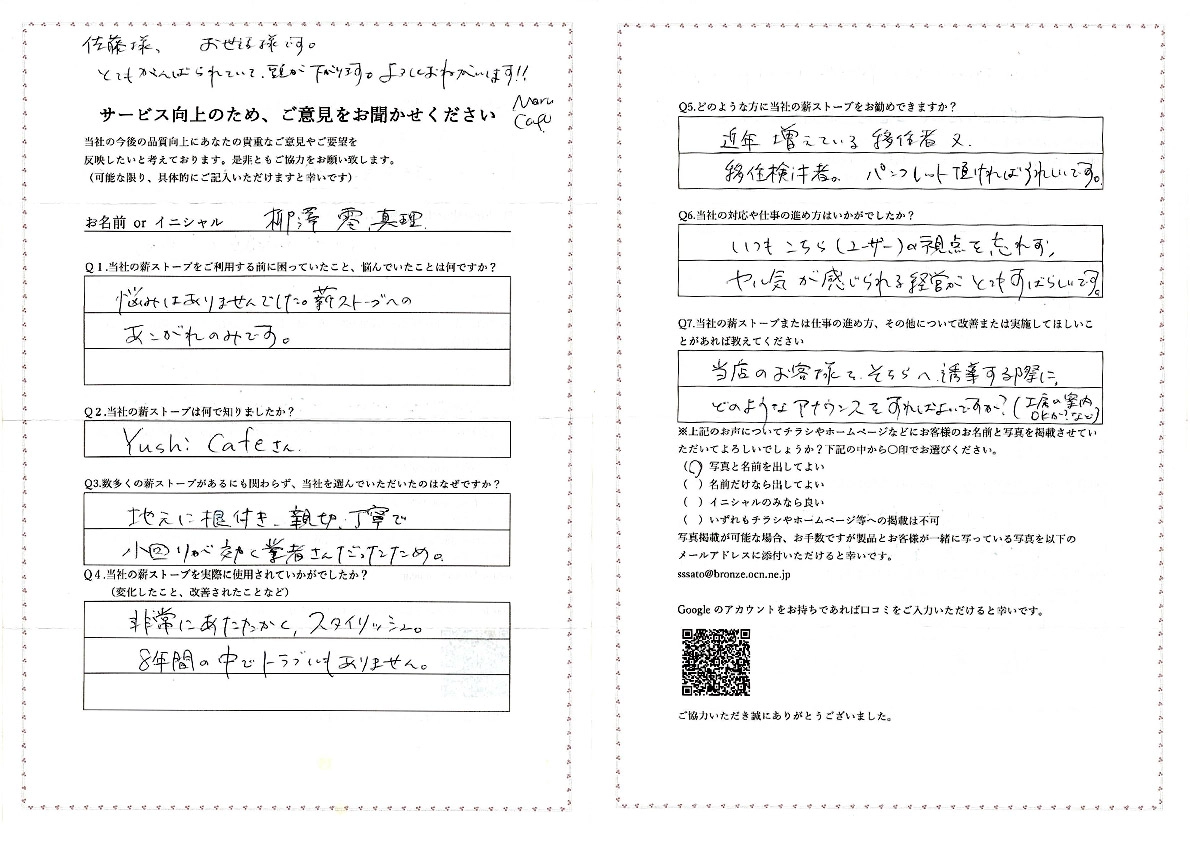 佐藤様、 お世話様です。
とてもがんばられていて、頭が下がります。よろしくおねがいします!!
Maru
Cafe
サービス向上のため、ご意見をお聞かせください
当社の今後の品質向上にあなたの貴重なご意見やご要望を
反映したいと考えております。是非ともご協力をお願い致します。
(可能な限り、具体的にご記入いただけますと幸いです)
お名前 or イニシャル 柳澤 零 真理
Q1.当社の薪ストーブをご利用する前に困っていたこと、悩んでいたことは何ですか?
悩みはありませんでした。薪ストーブへの
あこがれのみです。
Q2.当社の薪ストーブは何で知りましたか?
Yushi Cafeさん
Q3.数多くの薪ストーブがあるにも関わらず、当社を選んでいただいたのはなぜですか?
地元に根付き、親切、丁寧で
小回りが効く業者さんだったため。
Q4.当社の薪ストーブを実際に使用されていかがでしたか?
(変化したこと、改善されたことなど)
非常にあたたかく、スタイリッシュ。
8年間の中でトラブルもありません。
Q5.どのような方に当社の薪ストーブをお勧めできますか?
近年増えている移住者又
移住検討者。 パンフレット頂ければうれしいです。
Q6.当社の対応や仕事の進め方はいかがでしたか?
いつもこちら(ユーザー)の視点を忘れず、
ヤル気が感じられる経営がとてもすばらしいです。
Q7.当社の薪ストーブまたは仕事の進め方、その他について改善または実施してほしいこ
とがあれば教えてください
当店のお客様で、そちらへ誘導する際に、
どのようなアナウンスをすればよいですか?(工房の案内
OKか?など)
※上記のお声についてチラシやホームページなどにお客様のお名前と写真を掲載させてい
ただいてよろしいでしょうか?下記の中から〇印でお選びください。
(〇) 写真と名前を出してよい
( ) 名前だけなら出してよい
( ) イニシャルのみなら良い
( ) いずれもチラシやホームページ等への掲載は不可
写真掲載が可能な場合、お手数ですが製品とお客様が一緒に写っている写真を以下の
メールアドレスに添付いただけると幸いです。
sssato@bronze.ocn.ne.jp
Google のアカウントをお持ちであれば口コミをご入力いただけると幸いです。
ご協力いただき誠にありがとうございました。